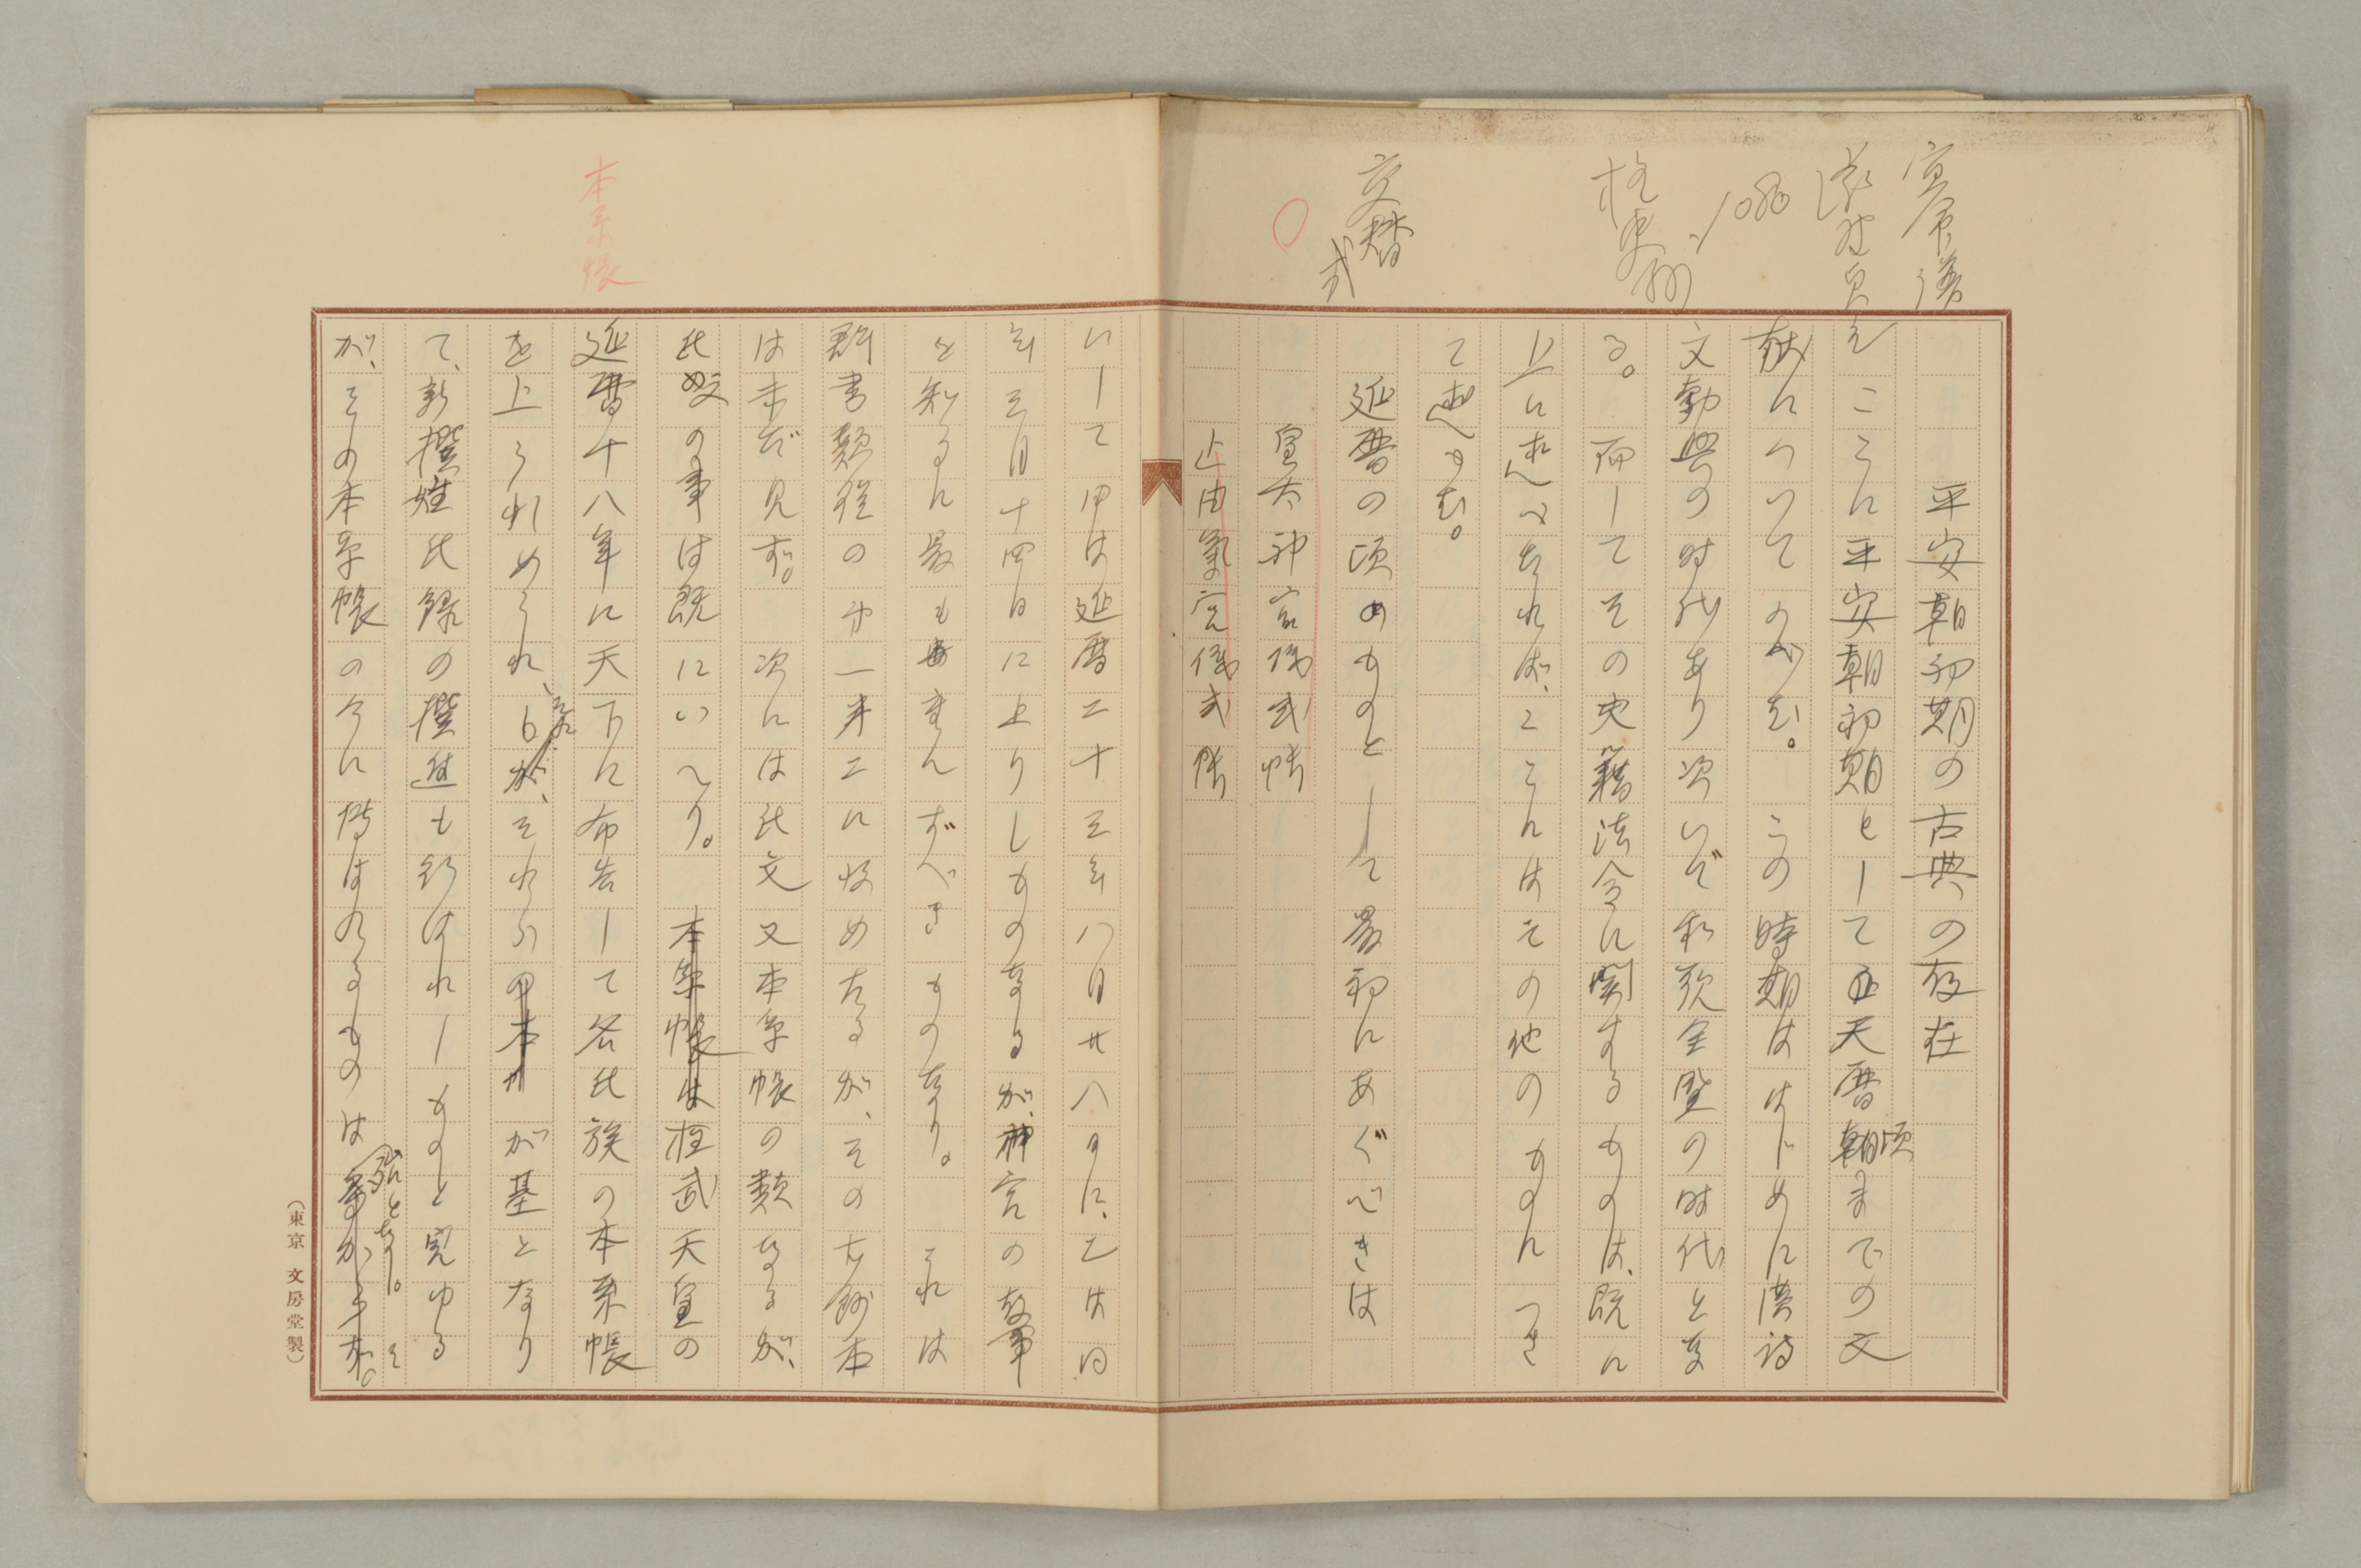 交替
式
平安朝初期の古典の存在
こゝに平安朝初期として天暦頃までの文
献についてのべむ。この時期ははじめに漢詩
文勃興の時代あり次いで和歌全盛の時代とな
る。而してその史籍法令に関するものは、既に
上に述べたれば、こゝにはその他のものにつき
て述べむ。
延暦の頃のものとして最初にあぐべきは
皇太神宮儀式帳
止由気宮儀式帳
にして甲は延暦二十三年八月廿八日に、乙は同
年三月十四日に上りしものなるが、神宮の故事
を知るに最も重んずべきものなり。これは
群書類従の第一第二に収めたるが、その古鈔本
は未だ見ず。次には氏文又本系帳の類なるが、
氏文の事は既にいへり。本系帳は桓武天皇の
延暦十八年に天下に布告して各氏族の本系帳
を上らしめられ、それらが基となり
て、新撰姓氏録の撰進も行はれしものと見ゆる
が、その本系帳の今に伝はれるものは殆となし。そ
本系帳
（東京 文房堂製）